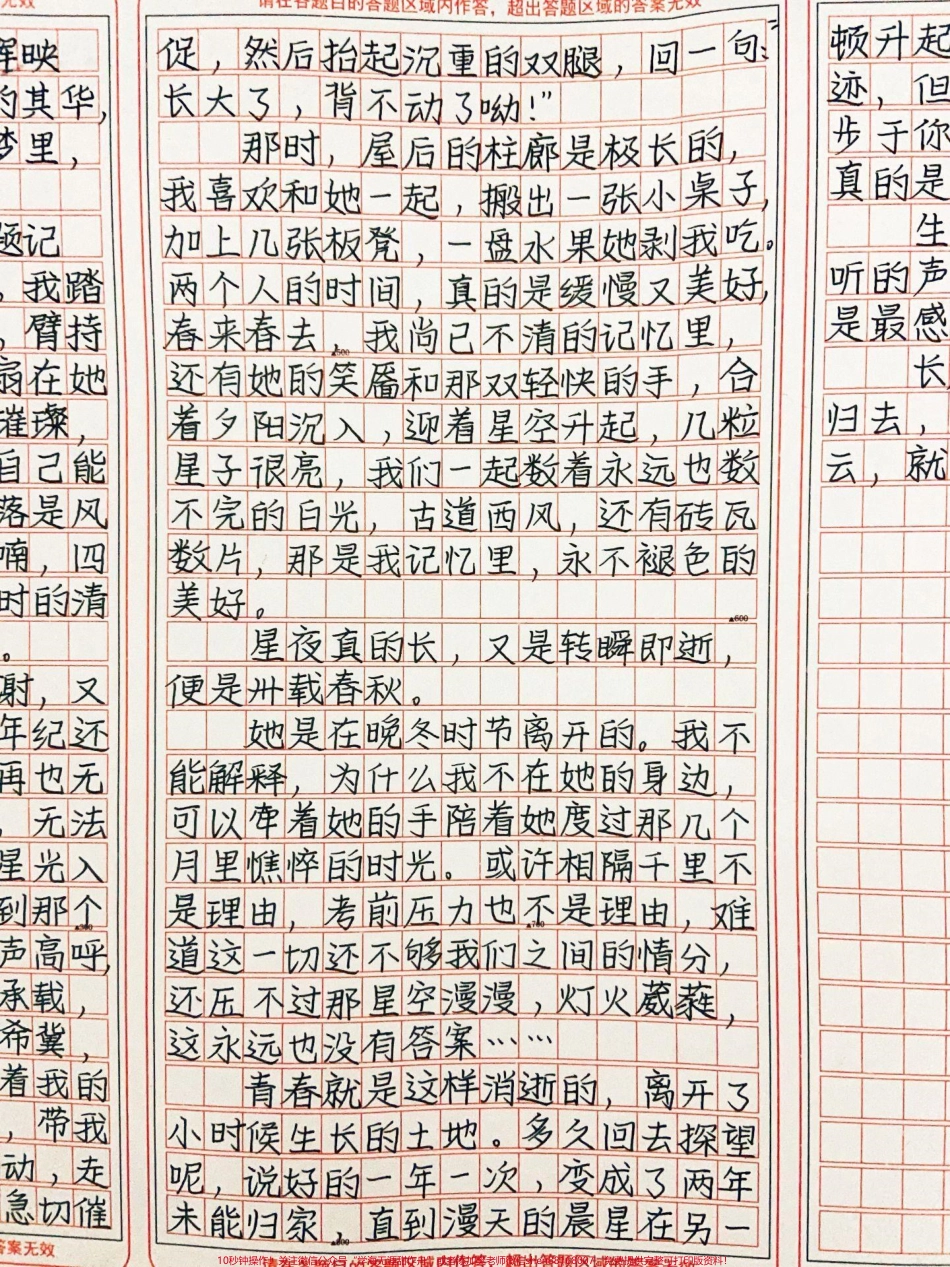 无效
晖映
的其华,
梦里,
题记
,我踏
,臂持
扇在她
璀璨,
自己能
落是风
喃,四
时的清
。
谢,又
年纪还
再也无
,无法
星光入
到那个
声高呼,
承载,
希冀,
着我的
,带我
动,走
急切催
答案无效
请在各题目的答题区域内作答,超出答题区域的答案无效
促,然后抬起沉重的双腿,回一句:“
长大了,背不动了呦!”
那时,屋后的柱廊是极长的,
我喜欢和她一起,搬出一张小桌子,
加上几张板凳,一盘水果她剥我吃。
两个人的时间,真的是缓慢又美好,
春来春去,我尚已不清的记忆里,
▲500
还有她的笑靥和那双轻快的手,合
着夕阳沉入,迎着星空升起,几粒
星子很亮,我们一起数着永远也数
不完的白光,古道西风,还有砖瓦
数片,那是我记忆里,永不褪色的
美好。
▲600
星夜真的长,又是转瞬即逝,
便是卅载春秋。
她是在晚冬时节离开的。我不
能解释,为什么我不在她的身边,
可以牵着她的手陪着她度过那几个
月里憔悴的时光。或许相隔千里不
是理由,考前压力也不是理由,难
▲700
道这一切还不够我们之间的情分,
还压不过那星空漫漫,灯火葳蕤,
这永远也没有答案……
青春就是这样消逝的,离开了
小时候生长的土地。多久回去探望
呢,说好的一年一次,变成了两年
未能归家,直到漫天的晨星在另一
▲800
顿升起
迹,但
步于你
真的是
生
听的声
是最感
长
归去,
云,就